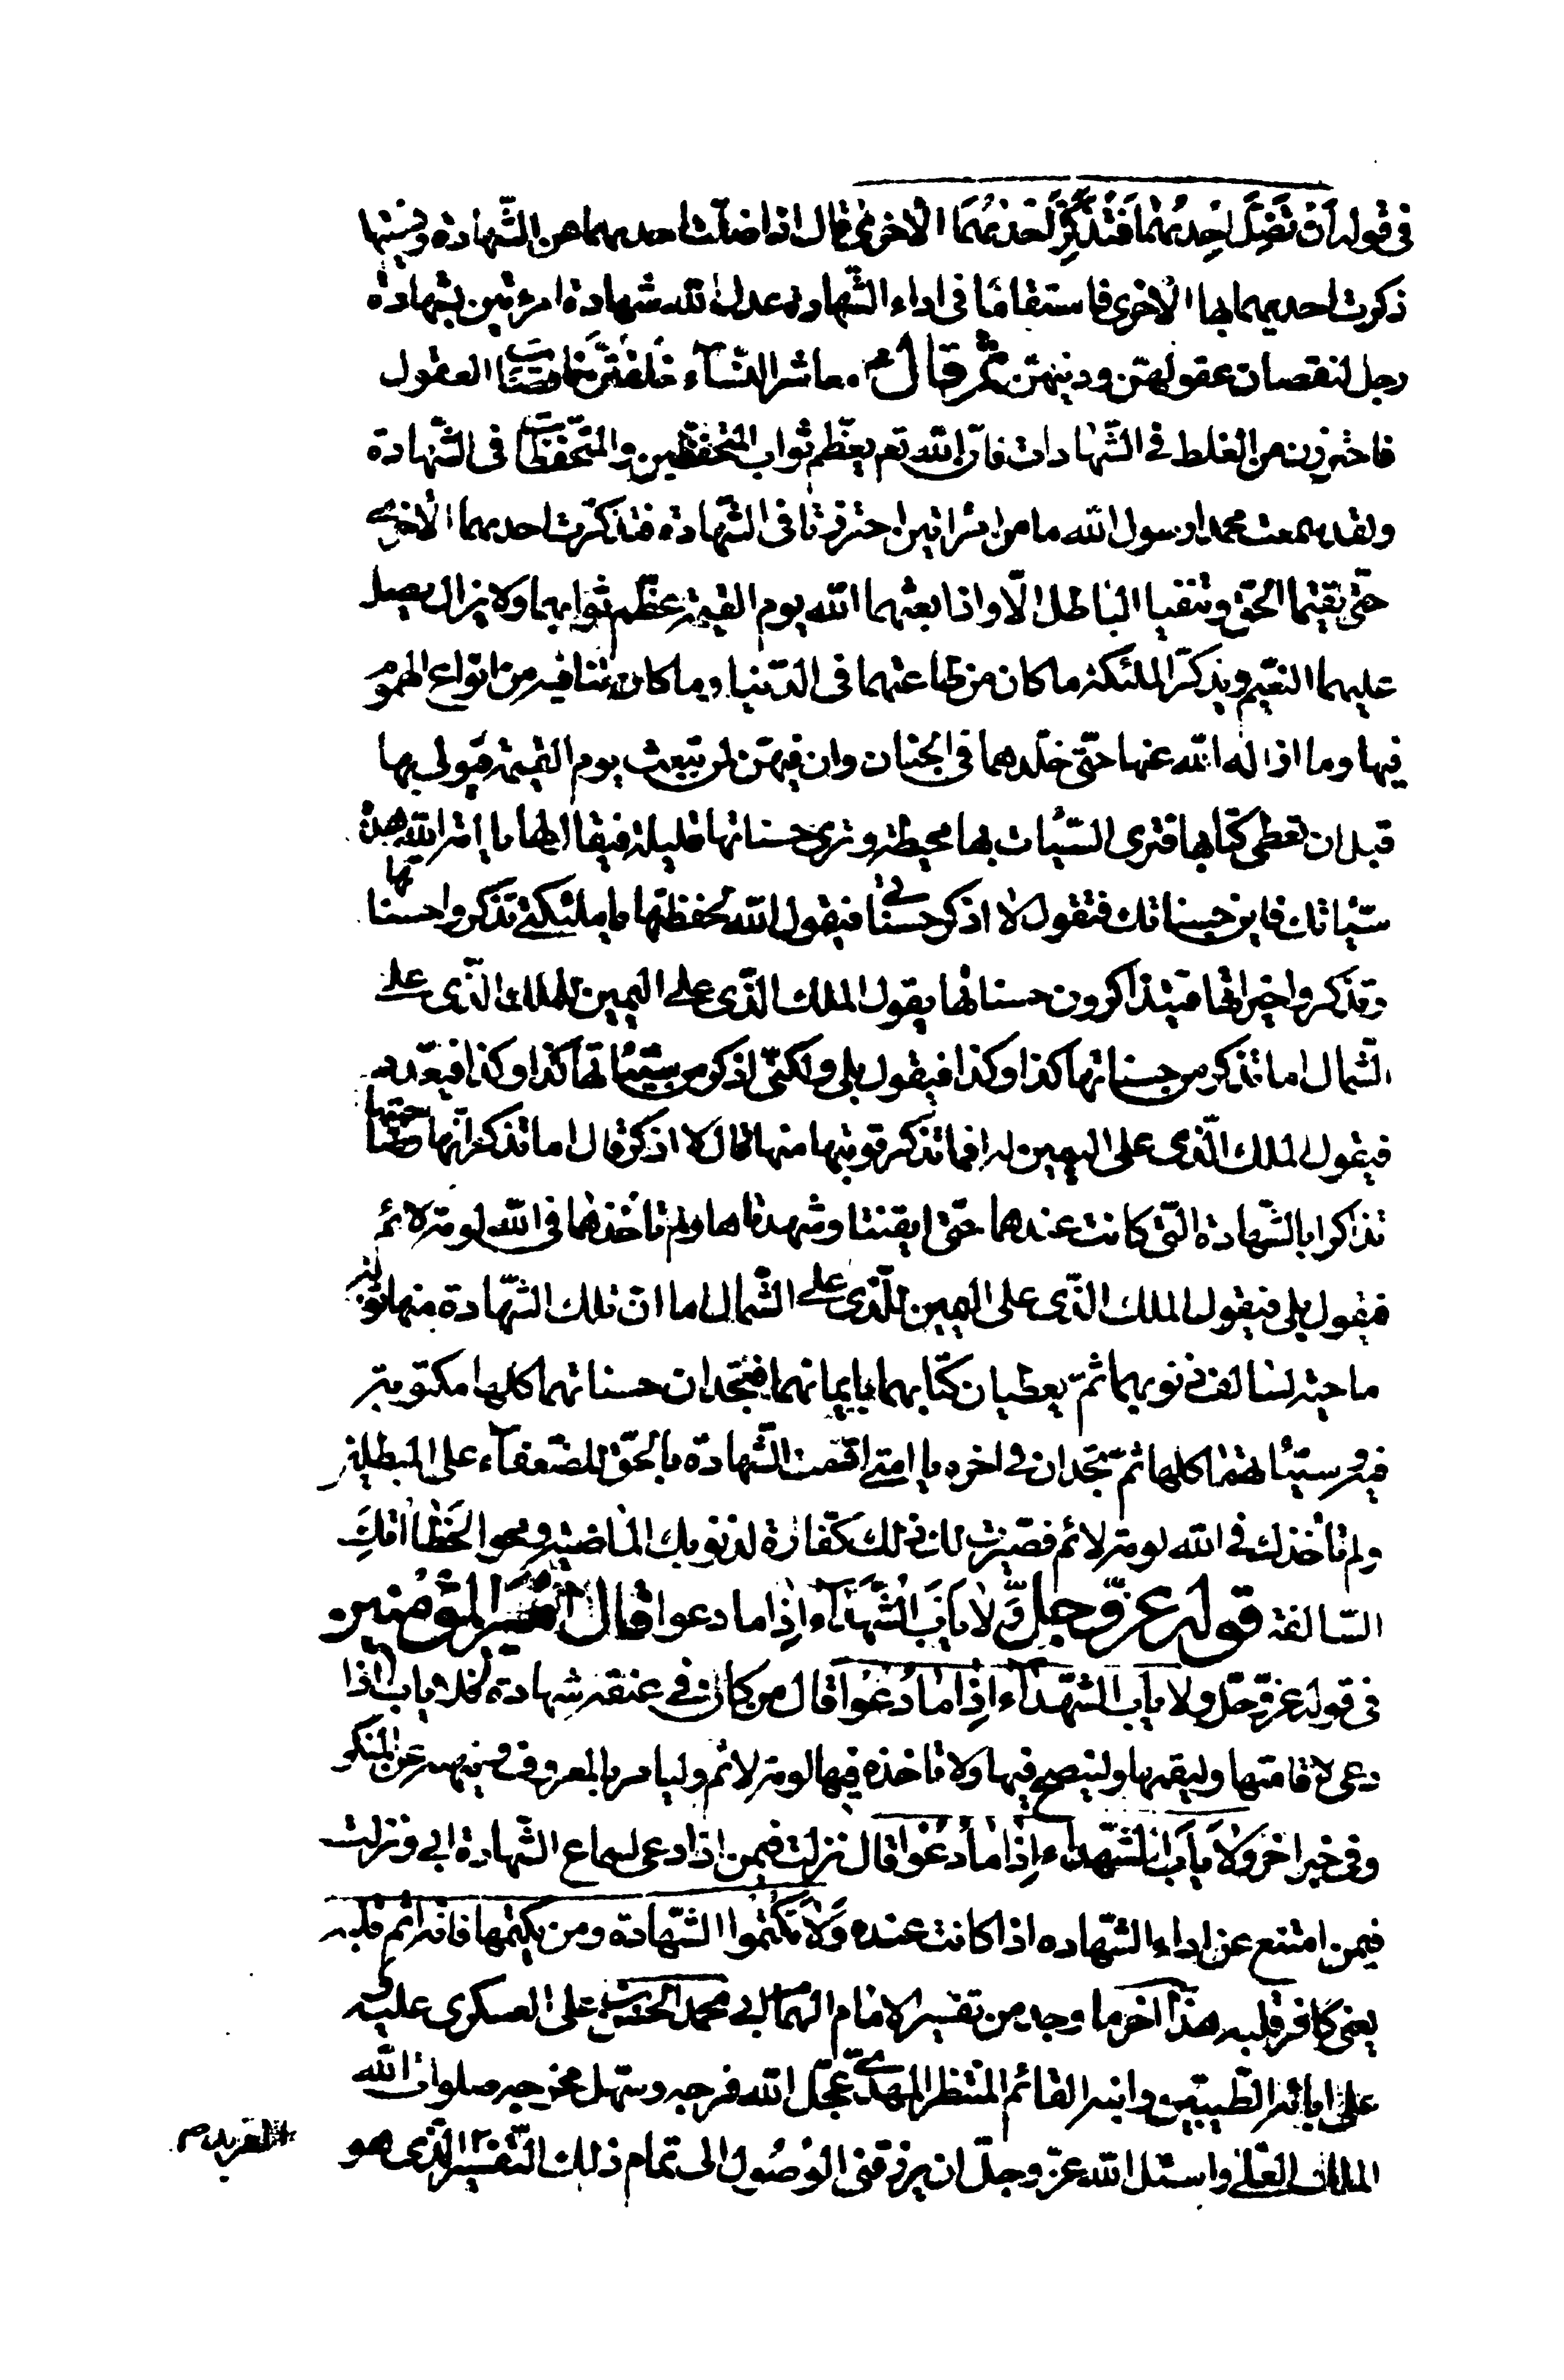 في قوله أَنْ تَضِلَّ إِحْدیٰهُمٰا فَتُذَكِّرَ إِحْدیٰهُمَا الْاُخْرىٰ قال اذا ضلت احدیهما عن الشّهادة ونسیتها
ذكرت احدیهما بها الاُخرى فاستقامتا فى اداء الشّهادة عدل الله شهادة امرئتین بشهادة
رجل لنقصان عقولهنّ ودینهنّ ثمّ قال ع معاشر النّسآء خلقتنّ ناقصات العقول
فاحترزن من الغلط في الشّهادات فانّ الله تعم یعظّم ثواب المتحفّظین والمتحفّظات فى الشّهادة
ولقد سمعت محمدا رسول الله ما من امرأتین احترزتا فى الشّهادة فتذكّرت احدیهما الاُخرى
حتّى تقیما الحقّ وتنفیا الباطل الّا واذا بعثهما الله یوم القیمة عظّم ثوابهما ولا یزال یصبّ
علیهما النّعیم ویذكّر الملئكة ما كان من طاعتهما فى الدّنیا وما كانتا فیه من انواع الهموم
فیها وما ازاله الله عنها حتّى خلّدهما فى الجنان وان فیهنّ لمن تبعث یوم القیمة فیؤتى بها
قبل ان تعطى كتابها فترى السّیّئات بها محیطة وترى حسناتها قلیلة فیقال لها یا امة الله هذه
سیّئاتك فاین حسناتك فتقول لا اذكر حسناتی فیقول الله لحفظتها یا ملئكتي تذكروا حسناتها
وتذكروا خیراتها فیتذاكرون حسناتها یقول الملك الّذى على الیمین للملك الّذى على
الشّمال اما تذكر من حسناتها كذا وكذا فیقول بلى ولكنّى اذكر من سیّئاتها كذا وكذا فیعدّد
فیقول الملك الّذى على الیمین له افما تذكر توبتها منها قال لا اذكر قال اما تذكر انّها وصاحبتها
تذاكرا بالشّهادة الّتى كانت عندهما حتّى ایقنتا وشهدتاها ولم تأخذهما فى الله لومة لائم
فیقول بلى فیقول الملك الّذى على الیمین للّذى على الشّمال اما انّ تلك الشّهادة منهما توبة
ماحیة لسالف ذنوبهما ثمّ یعطیان كتابهما بایمانهما فتجدان حسناتهما كلها مكتوبة
فیه وسیّئاتهما كلها ثمّ تجدان فى اخره یا امتي اقمت الشّهادة بالحقّ للضّعفآء على المبطلین
ولم تأخذك في الله لومة لائم فصیّرت لك ذلك كفّارة لذنوبك الماضیة ومحوا لخطایاكِ
السّالفة قوله عزّ وجلّ وَلٰا یَأْبَ الشُّهَدٰآء إِذٰا ما دعوا قال امیر المؤمنین
فى قوله عزّ وجلّ ولا یأب الشّهدآء اِذٰا مٰا دُعُوا قال من كان في عنقه شهادة فلا یأب اذا
دعى لاقامتها ولیقمها ولینصح فیها ولا تاخذه فیها لومة لائم ولیأمر بالمعروف ولینه عن المنكر
وفى خبر اخر وَلاٰ یَأبَ الشّهداء إِذٰا مٰا دُعُوا قال نزلت فیمن اذا دعى لسماع الشّهادة ابى ونزلت
فیمن امتنع عن اداء الشّهاده اذا كانت عنده وَلاٰ تَكْتُمُوا الشّهادة ومن یكتمها فانه اثم قلبه
یعنى كافر قلبه هذا آخر ما وجد من تفسیر الامام الهمام ابي محمد الحسن بن على العسكرى علیه و
على ابائه الطّیبین وابنه القائم المنتظر المهدى عجّل الله فرجه وسهّل مخرجه صلوات الله
الملك العلى واسئل الله عزّ وجلّ ان یرزقنى الوصول الى تمام ذلك التّفسیر الّذى هو